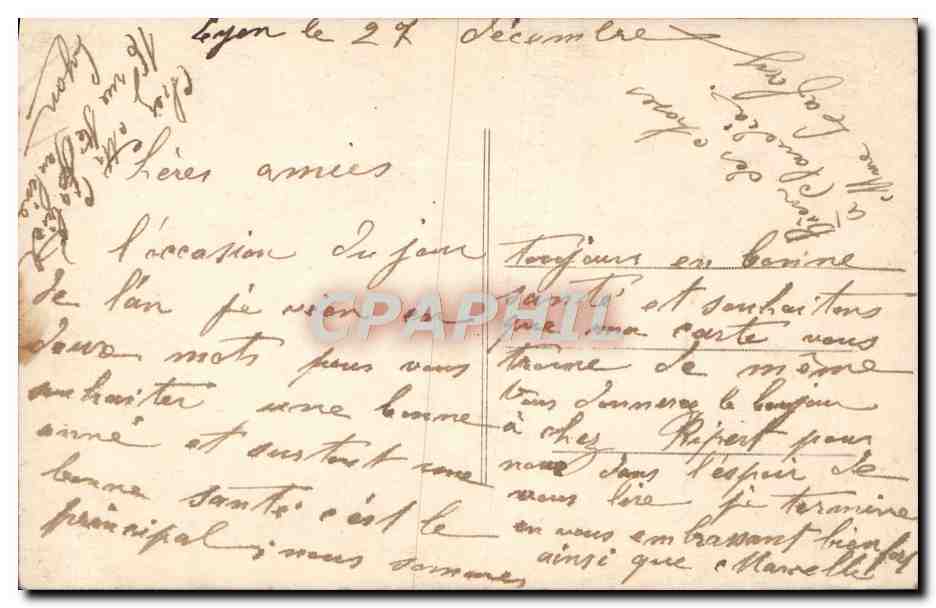 Lyon le 27 décembre
Chères amies
A l'occasion du jour
de l'an je vien en
deux mots pour vous
souhaiter une bonne
anné et surtout une
bonne santé c'est le
principal, nous sommes
toujours en bonne
santé et souhaitons
que ma carte vous
trouve de même
Vous donnerez le bonjour
à chez Ripert pour
nous dans l'espoir de
vous lire je termine
en vous embrassant bien fort
ainsi que Marcelle
choses
Mme
Lyon
CPAPHIL